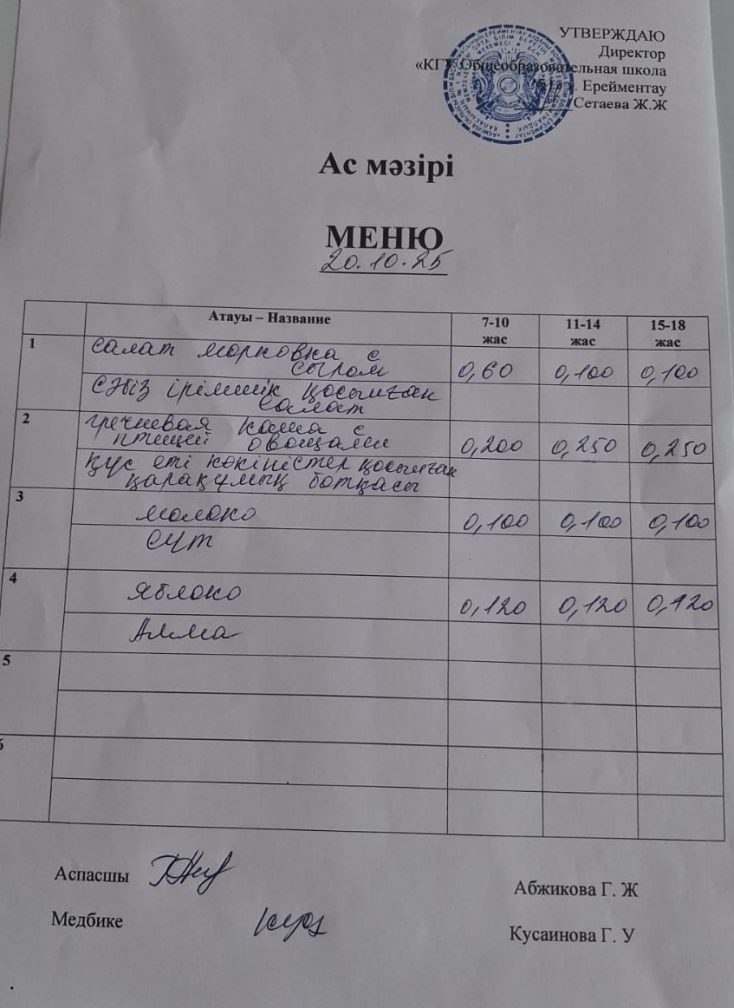 УТВЕРЖДАЮ
Директор
«КГУ Общеобразовательная школа
г. Ерейментау
Сетаева Ж.Ж
Ас мәзірі
МЕНЮ
20.10.25
Атауы – Название 7-10 жас 11-14 жас 15-18 жас
1 салат морковка с
сыром 0,60 0,100 0,100
сәбіз ірімшік қосылған
салат
2 гречневая каша с
птицей овощами 0,200 0,250 0,250
құс еті көкіністер қосылған
қарақұмық ботқасы
3 молоко 0,100 0,100 0,100
сүт
4 яблоко 0,120 0,120 0,120
Алма
5
6
Аспасшы Абжикова Г. Ж
Медбике Кусаинова Г. У